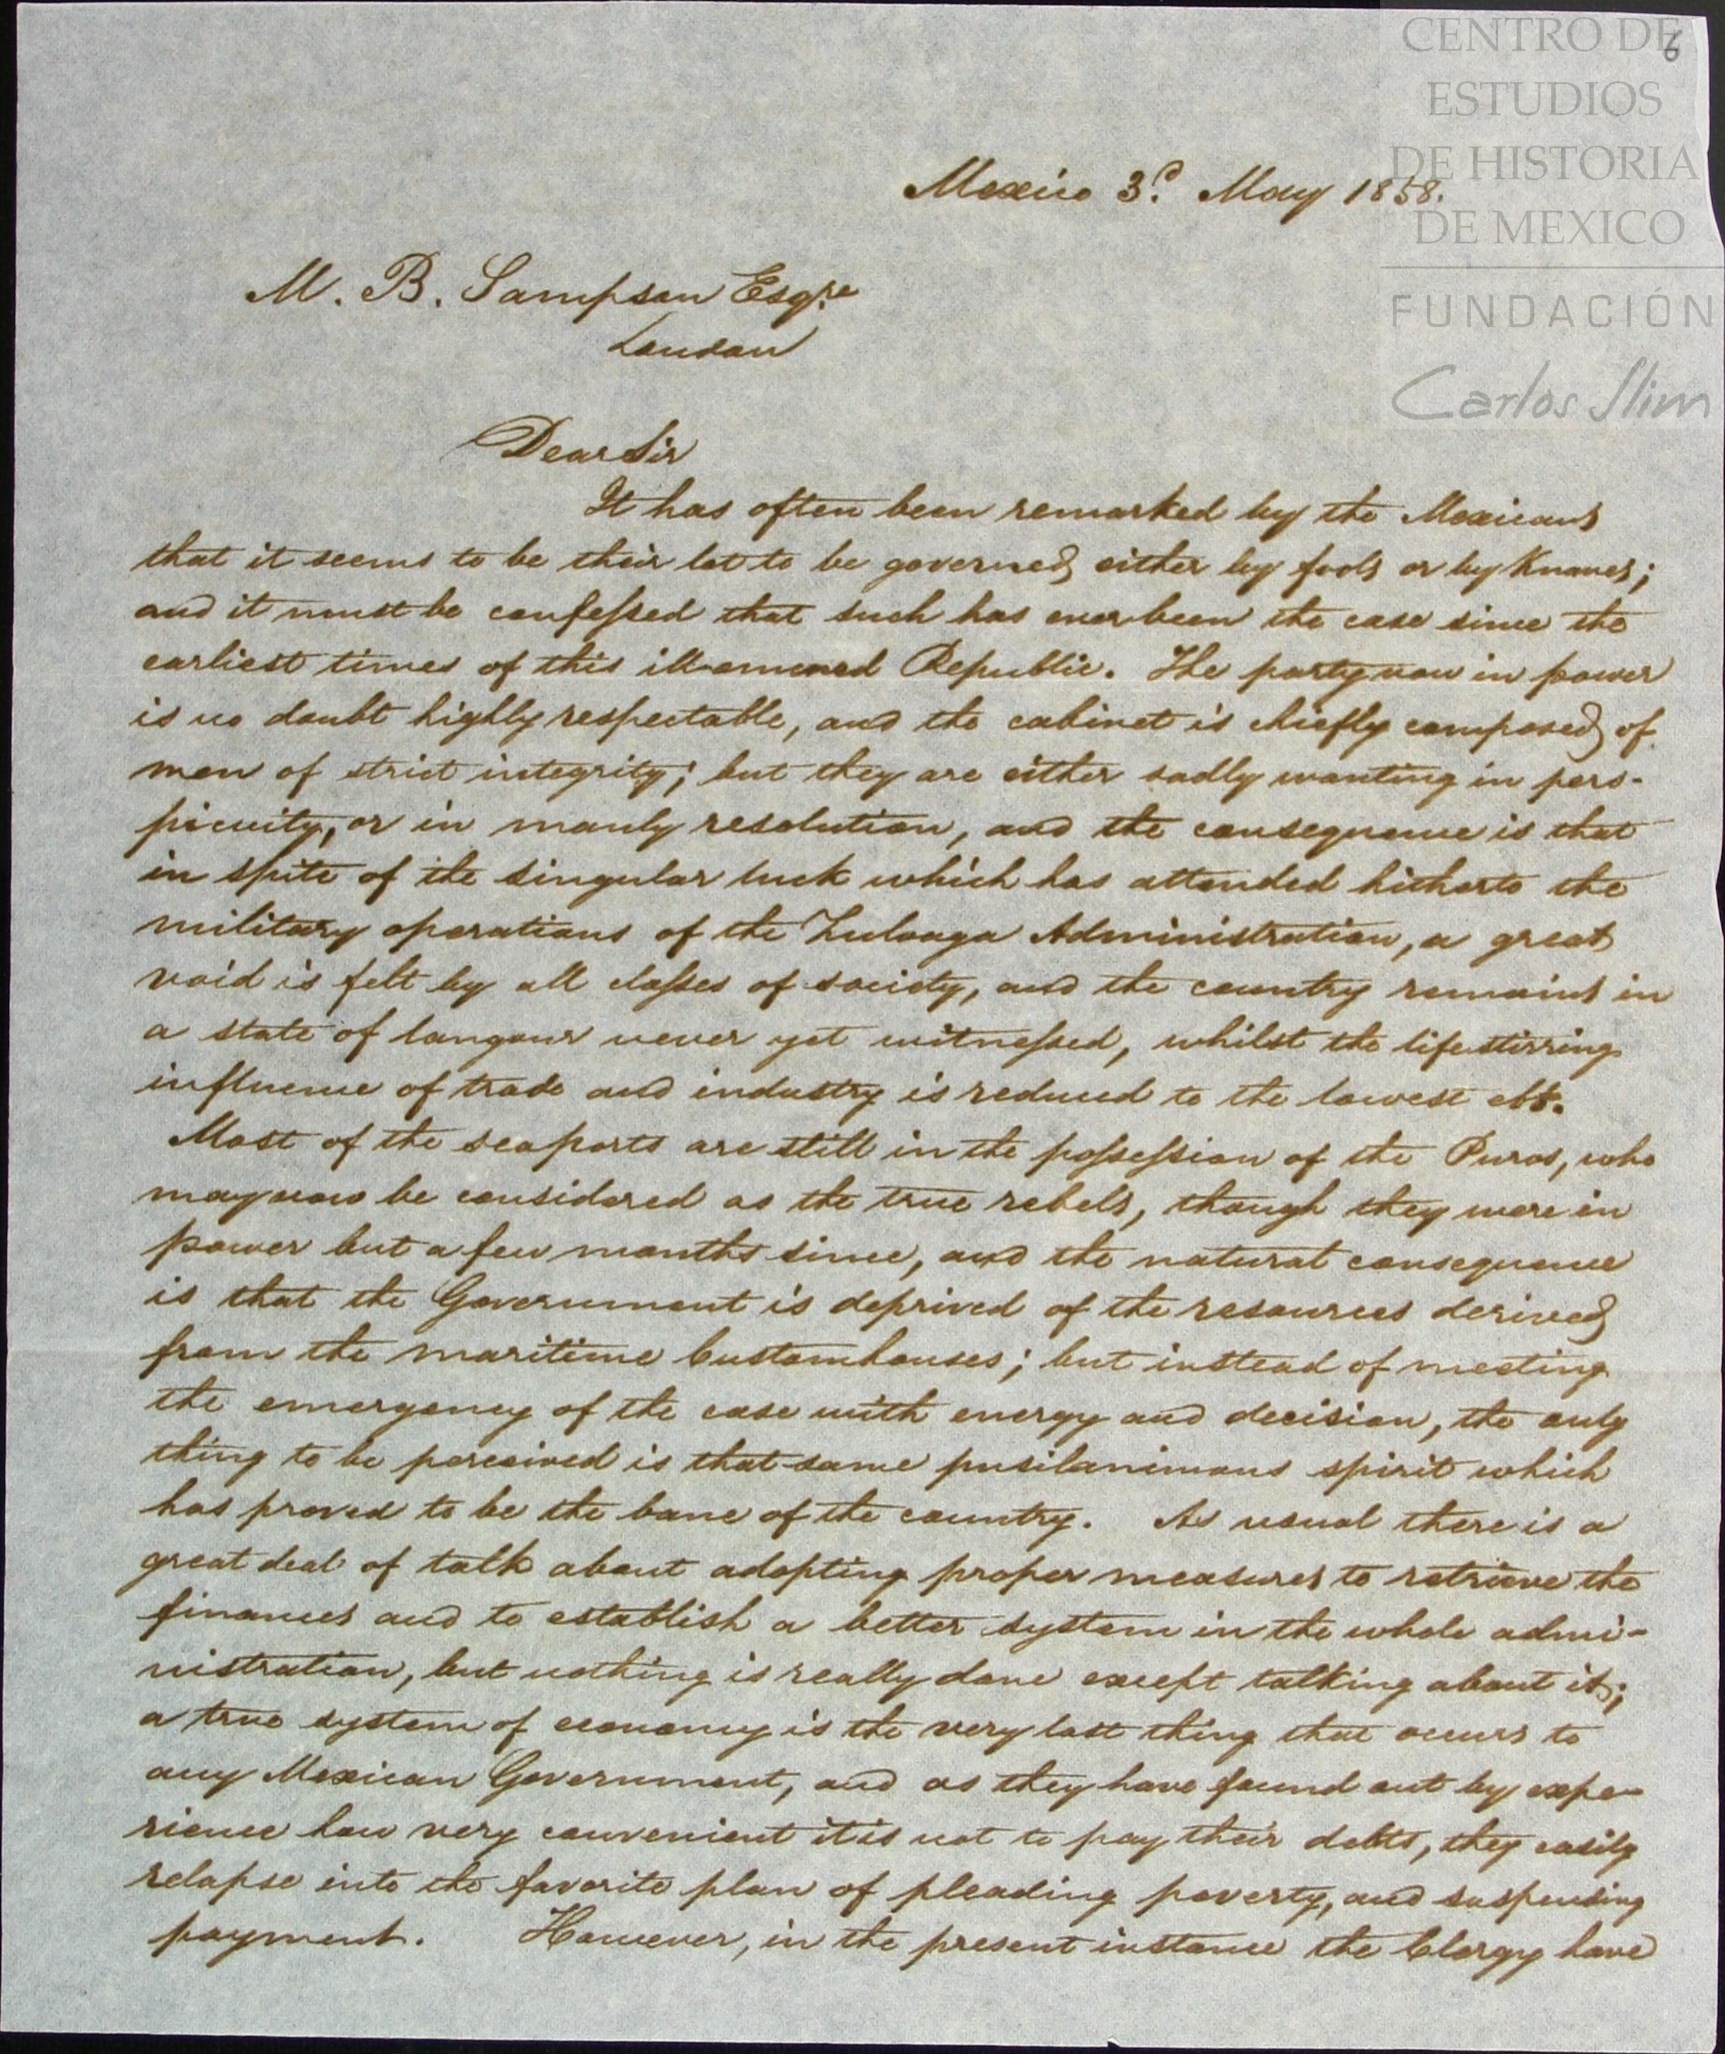 6
CENTRO DE
ESTUDIOS
DE HISTORIA
DE MEXICO
FUNDACIÓN
Carlos Slim
Mexico 3d. May 1858.
M. B. Sampson Esqre.
London
Dear Sir
It has often been remarked by the Mexicans
that it seems to be their lot to be governed either by fools or by Knaves;
and it must be confessed that such has ever been the case since the
earliest times of this ill-omened Republic. The party now in power
is no doubt highly respectable, and the cabinet is chiefly composed of
men of strict integrity; but they are either sadly wanting in pers-
picuity, or in manly resolution, and the consequence is that
in spite of the singular luck which has attended hitherto the
military operations of the Zuloaga Administration, a great
void is felt by all classes of society, and the country remains in
a state of langour never yet witnessed, whilst the lifestirring
influence of trade and industry is reduced to the lowest ebb.
Most of the seaports are still in the possession of the Puros, who
may now be considered as the true rebels, though they were in
power but a few months since, and the natural consequence
is that the Government is deprived of the resources derived
from the maritime Customhouses; but instead of meeting
the emergency of the case with energy and decision, the only
thing to be perceived is that same pusilanimous spirit which
has proved to be the bane of the country. As usual there is a
great deal of talk about adopting proper measures to retrieve the
finances and to establish a better system in the whole admi-
nistration, but nothing is really done except talking about it;
a true system of economy is the very last thing that occurs to
any Mexican Government, and as they have found out by expe-
rience how very convenient it is not to pay their debts, they easily
relapse into the favorite plan of pleading poverty, and suspending
payment. However, in the present instance the Clergy have